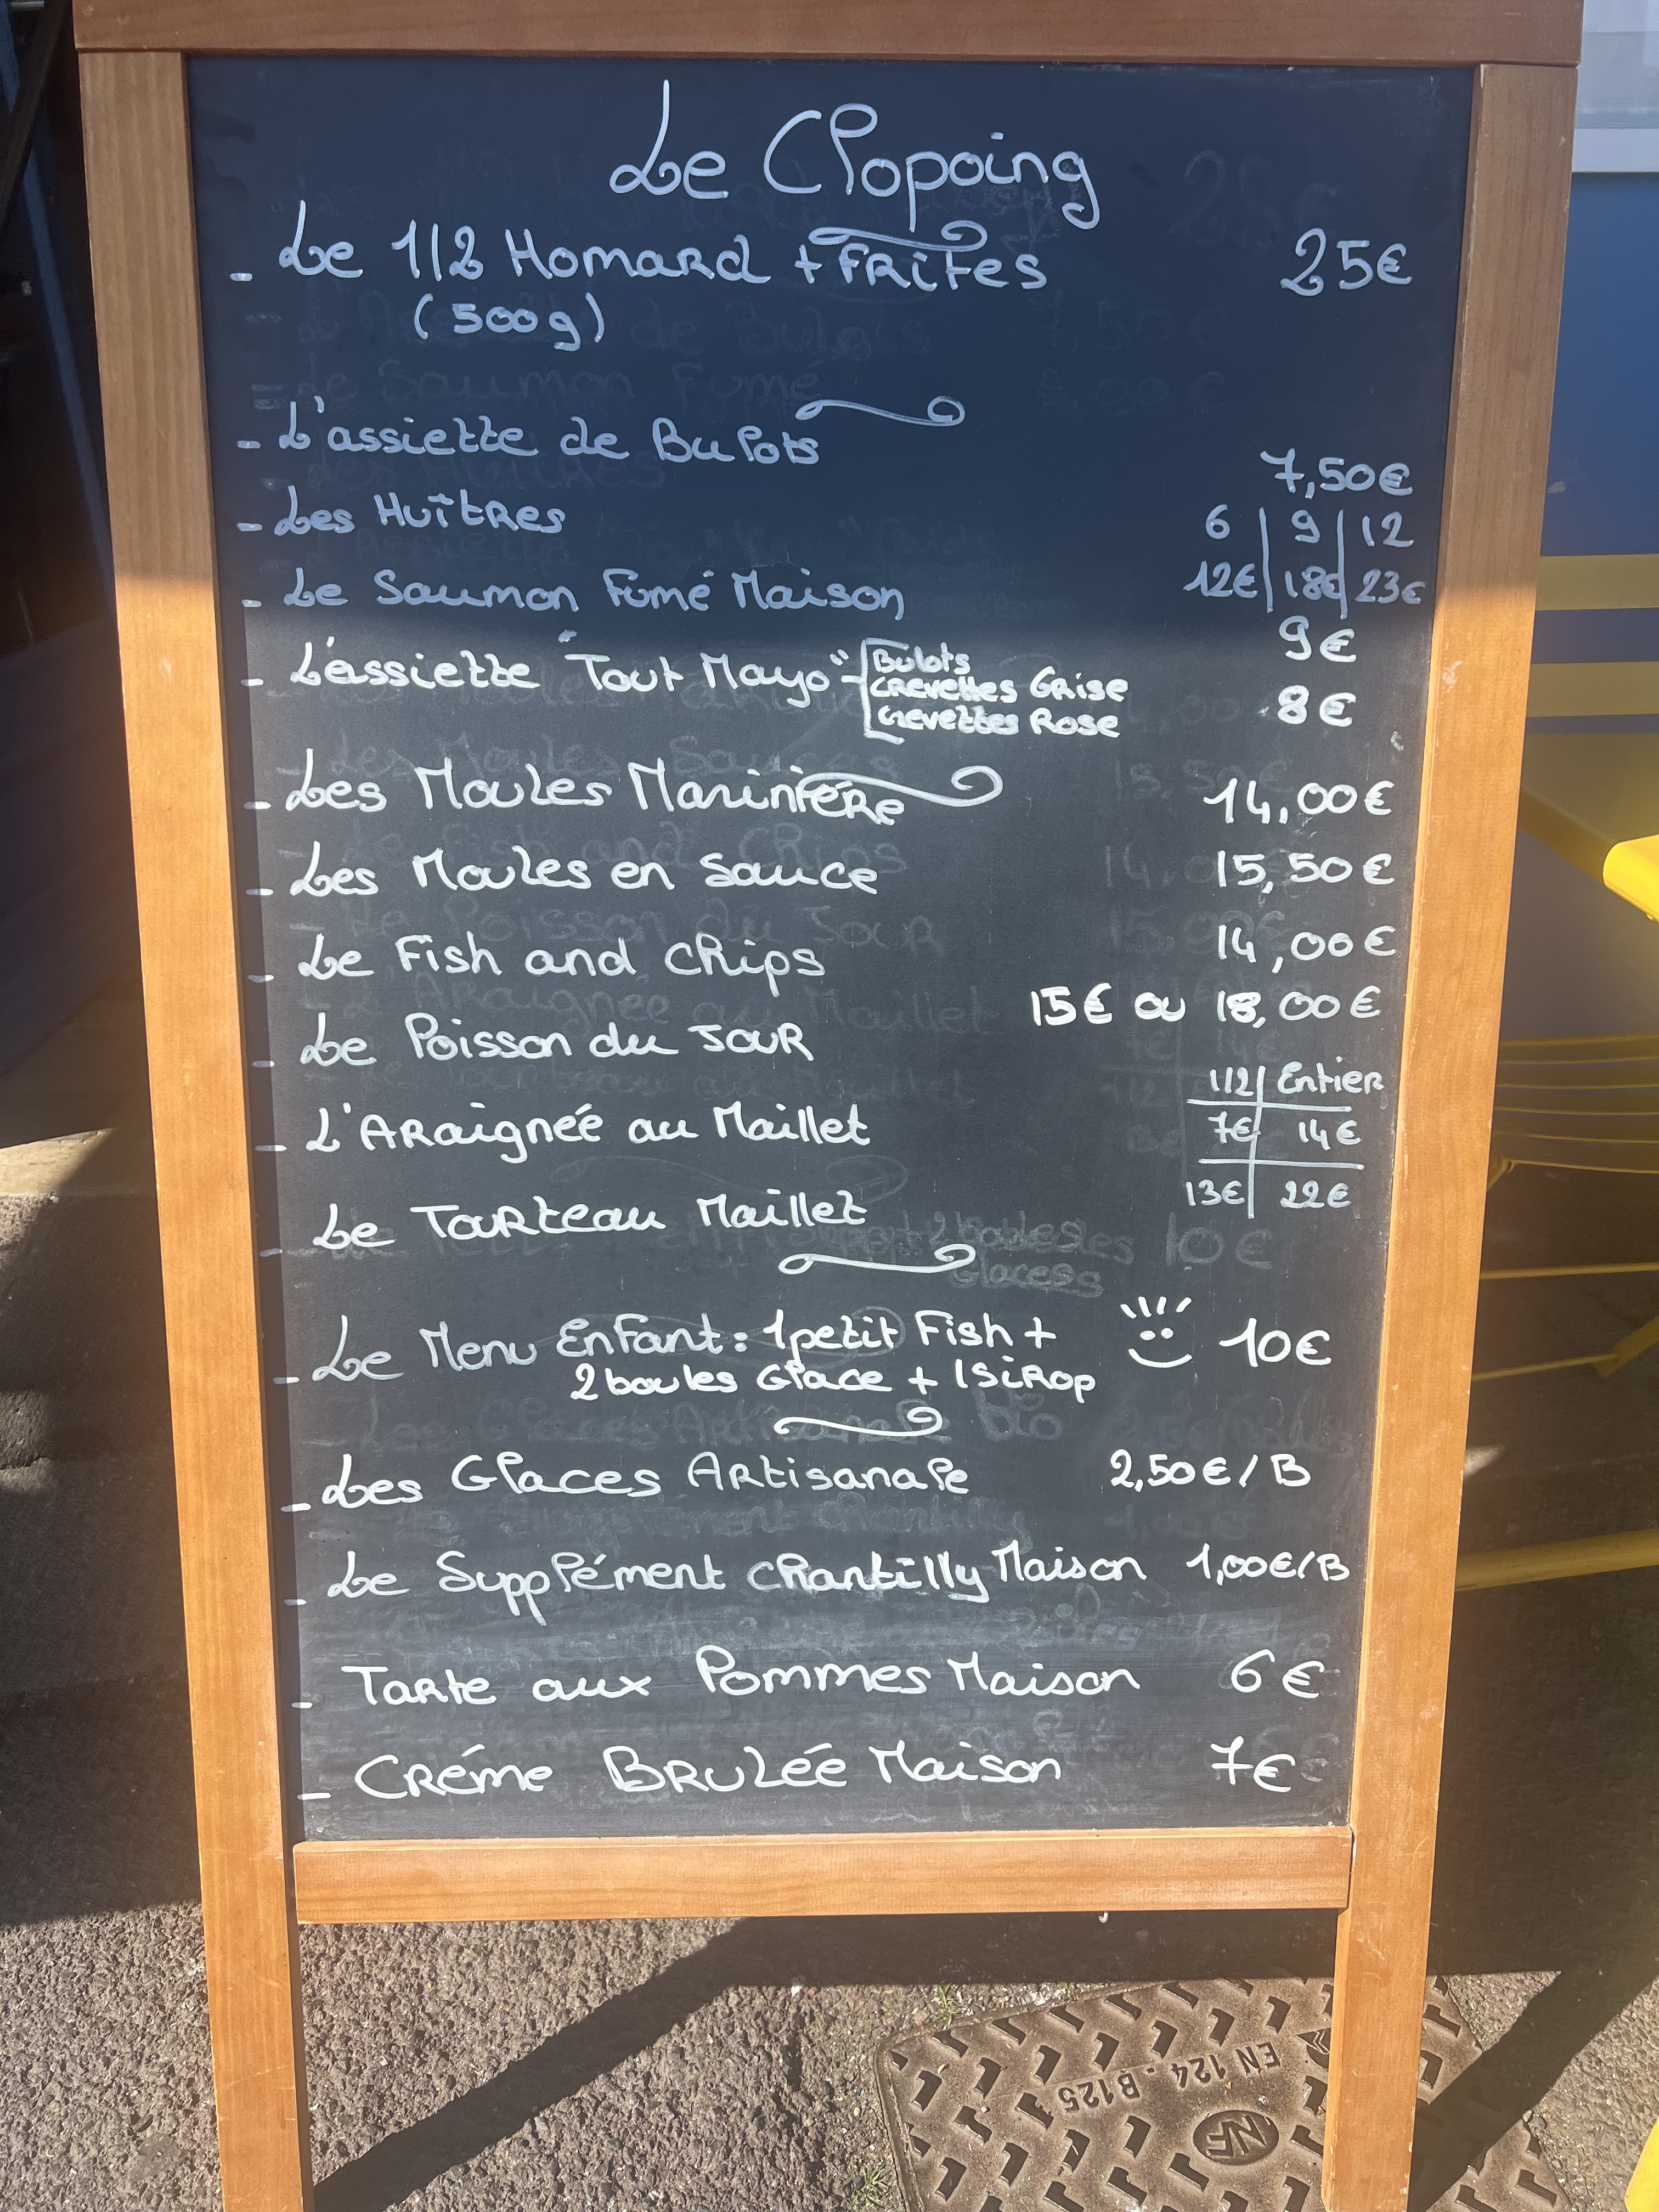 Le Clopoing
- Le 1/2 Homard + Frites 25€
(500g)
- L'assiette de Bulots 7,50€
- Les Huîtres 6 | 9 | 12
12€ | 18€ | 23€
- Le Saumon Fumé Maison 9€
- L'assiette "Tout Mayo" - [Bulots
Crevettes Grise
Crevettes Rose 8€
- Les Moules Marinière 14,00€
- Les Moules en sauce 15,50€
- Le Fish and Chips 14,00€
- Le Poisson du Jour 15€ ou 18,00€
1/2 | Entier
- L'Araignée au Maillet 7€ | 14€
- Le Tourteau Maillet 13€ | 22€
- Le Menu Enfant : 1 petit Fish + 10€
2 boules Glace + 1 Sirop
- Les Glaces Artisanale 2,50€/B
- Le Supplément chantilly Maison 1,00€/B
- Tarte aux Pommes Maison 6€
- Créme Brulée Maison 7€
EN 124 - B125
NF